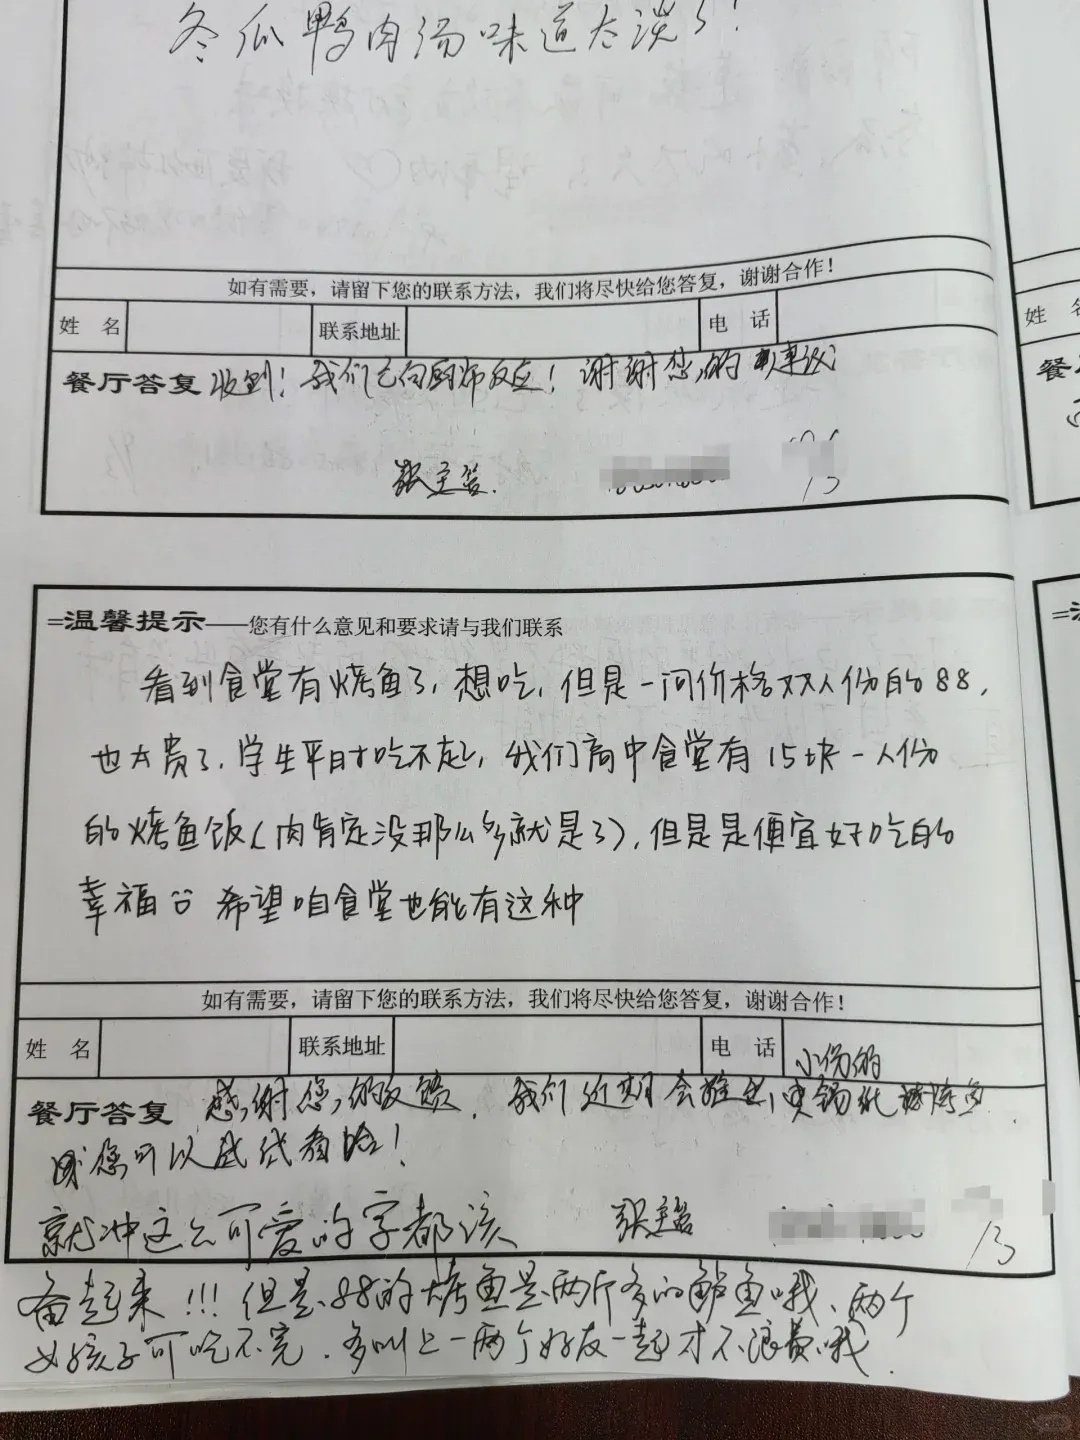 冬瓜鸭肉汤味道太淡了！
如有需要，请留下您的联系方法，我们将尽快给您答复，谢谢合作！
姓 名 联系地址 电 话
姓 名
餐厅答复 收到！我们已向厨师反应！谢谢您的
餐
=温馨提示——您有什么意见和要求请与我们联系
看到食堂有烤鱼了，想吃，但是一问价格双人份的88，
也太贵了，学生平时吃不起，我们高中食堂有15块一人份
的烤鱼饭（肉肯定没那么多就是了），但是是便宜好吃的
幸福 希望咱食堂也能有这种
如有需要，请留下您的联系方法，我们将尽快给您答复，谢谢合作！
姓 名 联系地址 电 话
小份的
餐厅答复 感谢您的反馈，我们近期会推出 锡纸 烤鱼
您可以试试看哈！
就冲这么可爱的字都该
奋起来！！！但是88的烤鱼是两斤多的鲈鱼哦、两个
女孩子可吃不完．多叫上一两个好友一起才不浪费哦．